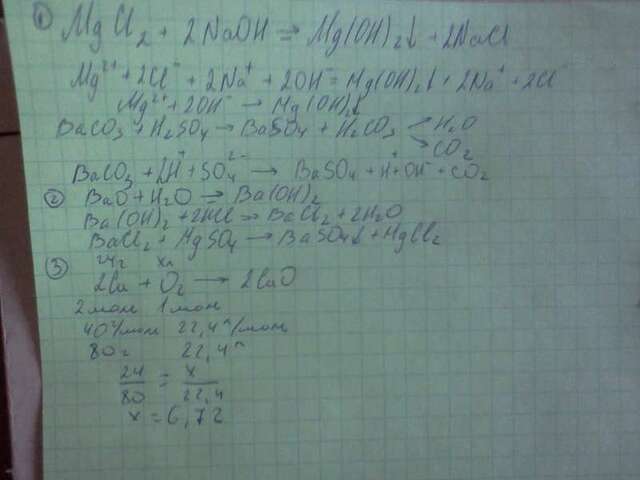 ① MgCl₂ + 2NaOH → Mg(OH)₂↓ + 2NaCl
Mg²⁺ + 2Cl⁻ + 2Na⁺ + 2OH⁻ = Mg(OH)₂↓ + 2Na⁺ + 2Cl⁻
Mg²⁺ + 2OH⁻ → Mg(OH)₂↓
BaCO₃ + H₂SO₄ → BaSO₄ + H₂CO₃ → H₂O
→ CO₂
BaCO₃ + 2H⁺ + SO₄²⁻ → BaSO₄ + H⁺ + OH⁻ + CO₂
② BaO + H₂O → Ba(OH)₂
Ba(OH)₂ + 2HCl → BaCl₂ + 2H₂O
BaCl₂ + MgSO₄ → BaSO₄↓ + MgCl₂
③ 24г хл
2Ca + O₂ → 2CaO
2моль 1моль
40г/моль 22,4л/моль
80г 22,4л
24/80 = x/22,4
x = 6,72